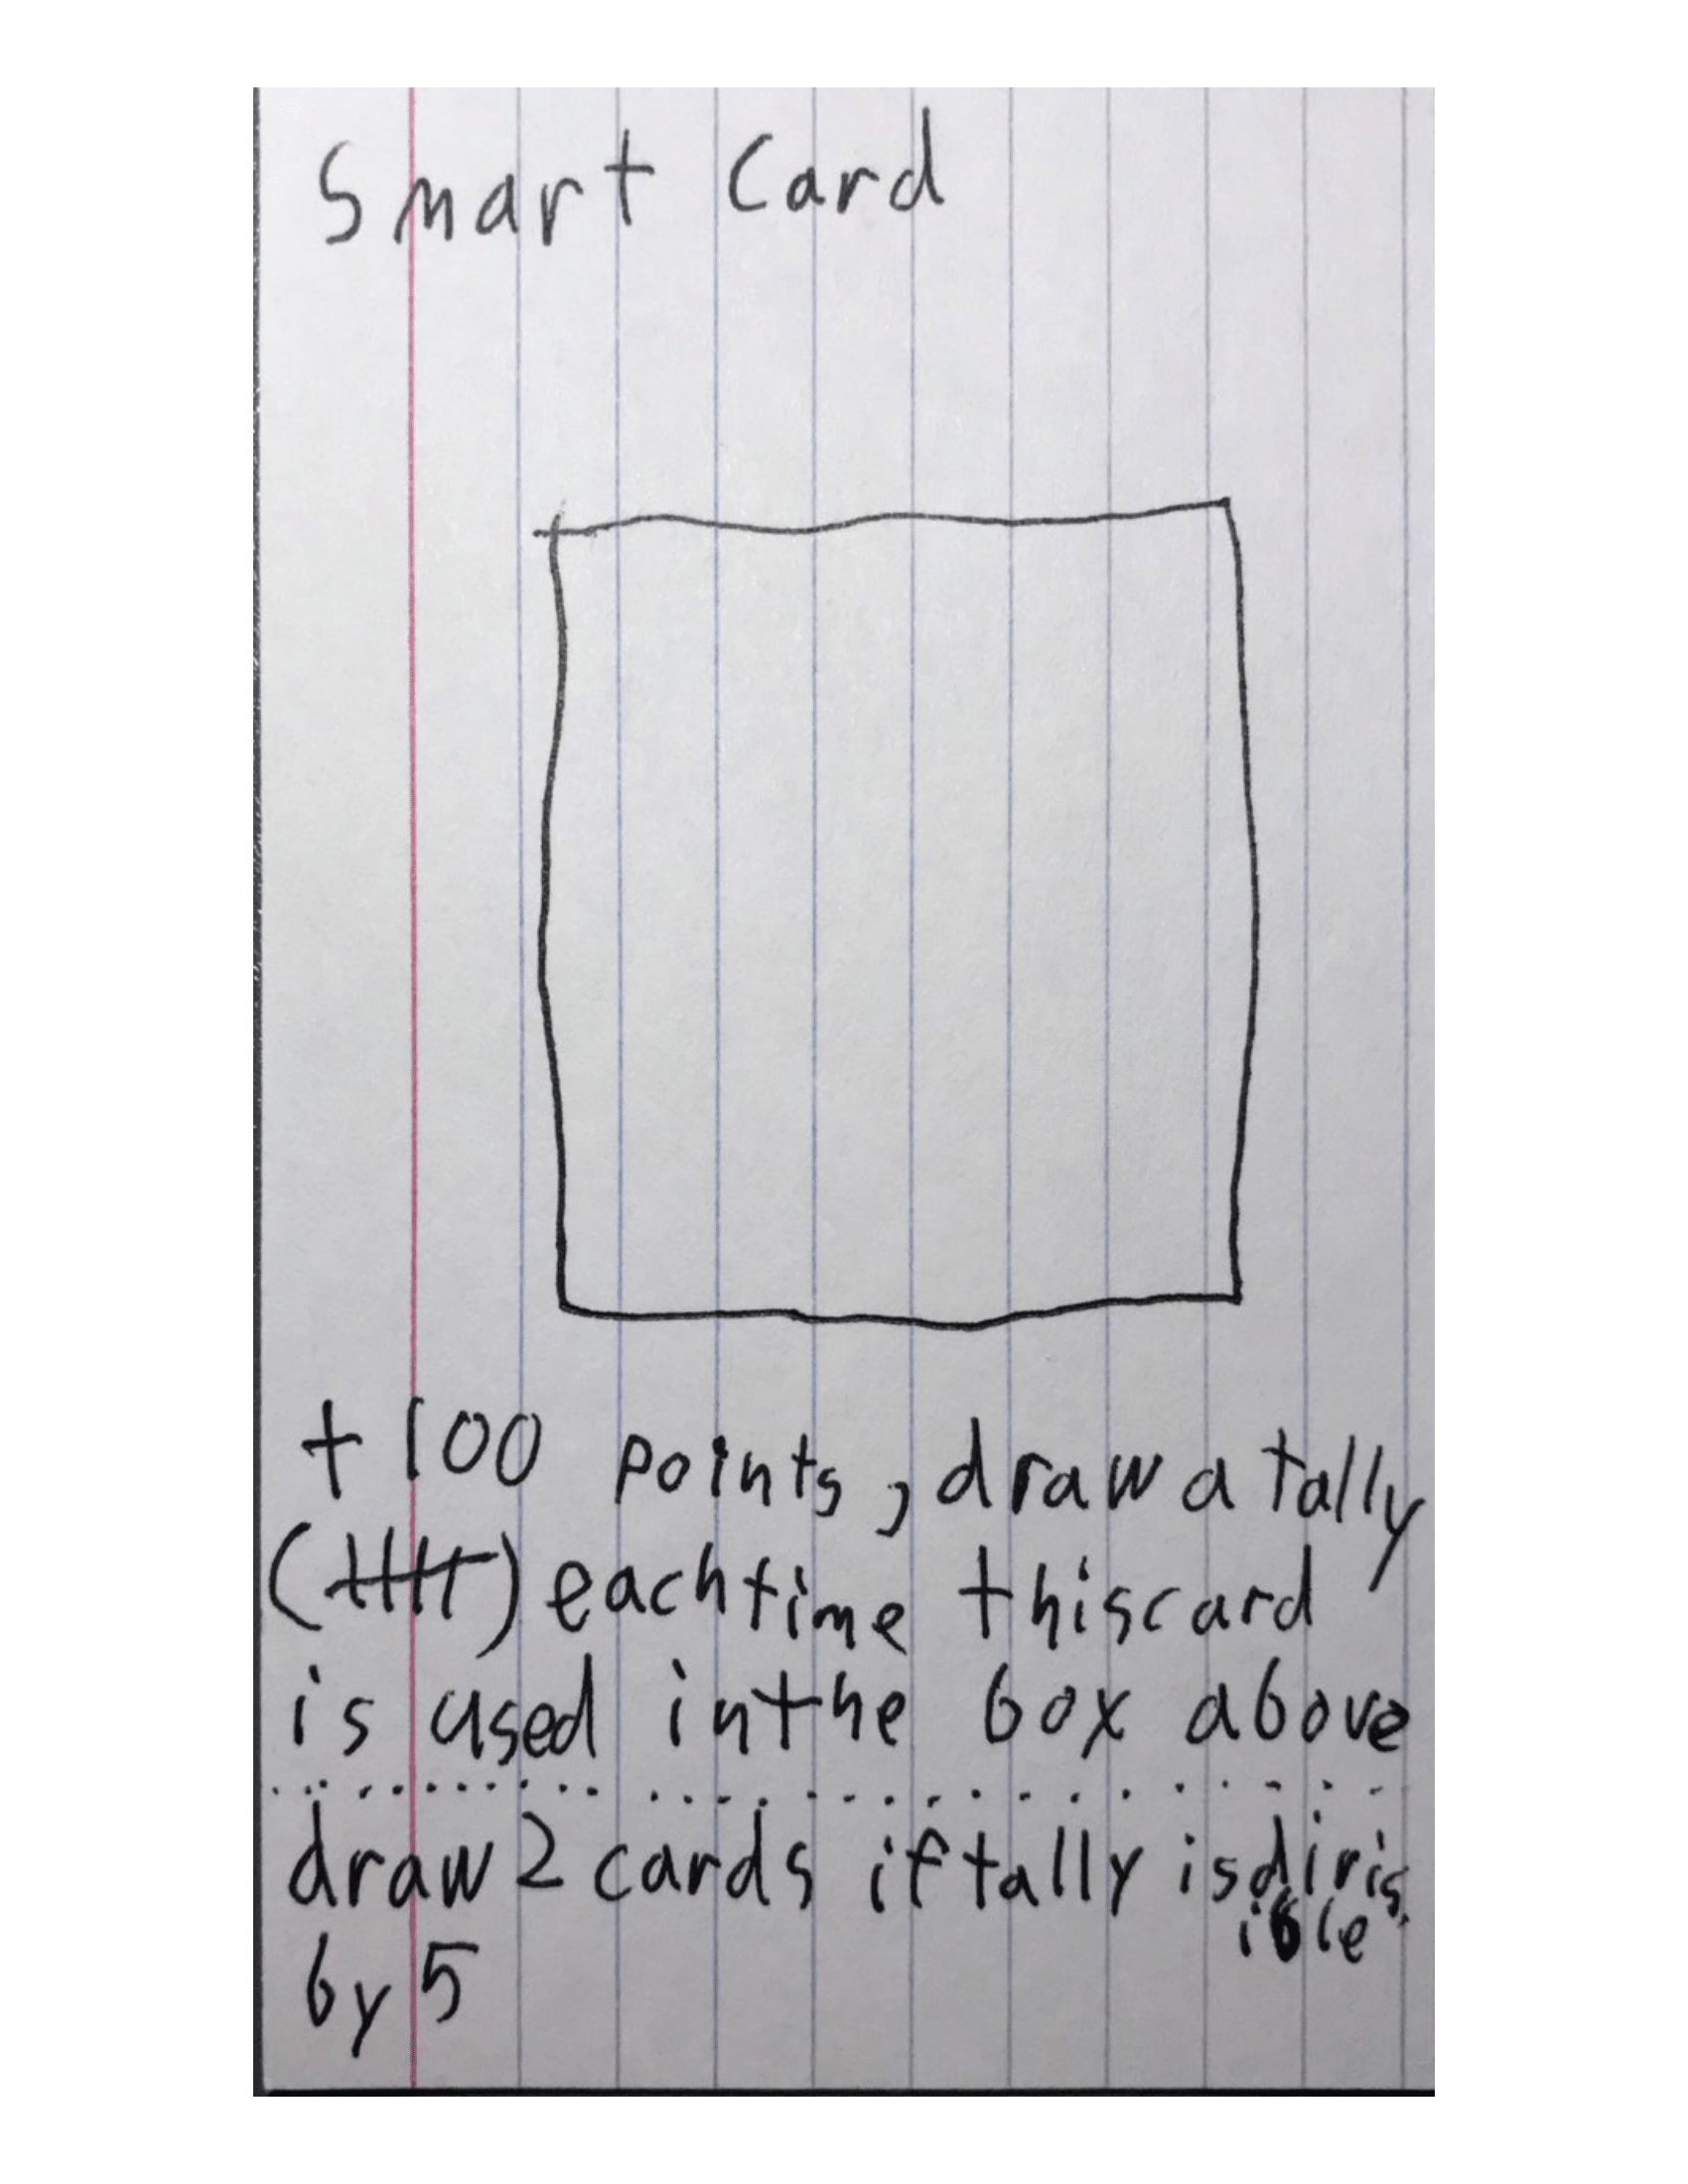 Smart Card
+100 points, draw a tally
(卌) each time this card
is used in the box above
draw 2 cards if tally is divis
ible
by 5